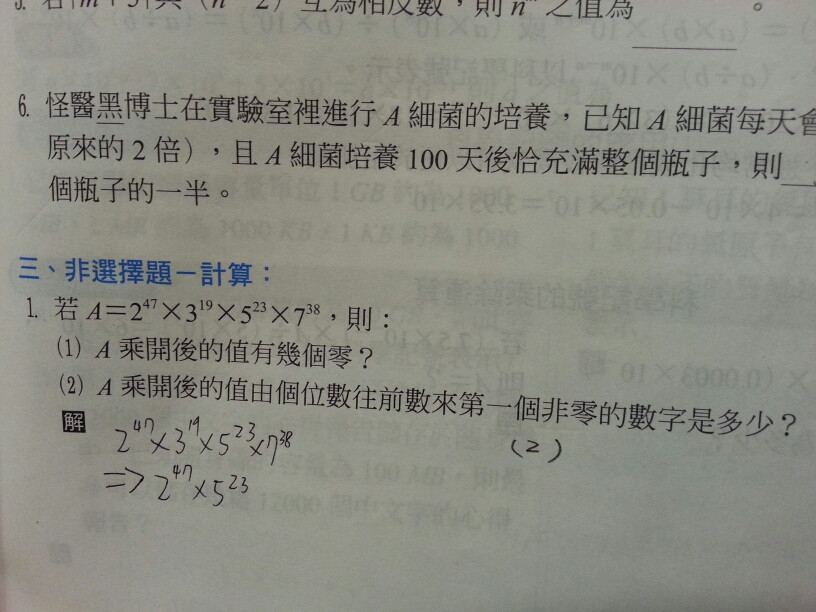 互為相反數,則 nᵐ 之值為______。
6. 怪醫黑博士在實驗室裡進行 A 細菌的培養,已知 A 細菌每天會
原來的 2 倍),且 A 細菌培養 100 天後恰充滿整個瓶子,則
個瓶子的一半。
三、非選擇題-計算:
1. 若 A=2⁴⁷×3¹⁹×5²³×7³⁸,則:
(1) A 乘開後的值有幾個零?
(2) A 乘開後的值由個位數往前數來第一個非零的數字是多少?
解 2⁴⁷×3¹⁹×5²³×7³⁸ (2)
=> 2⁴⁷×5²³